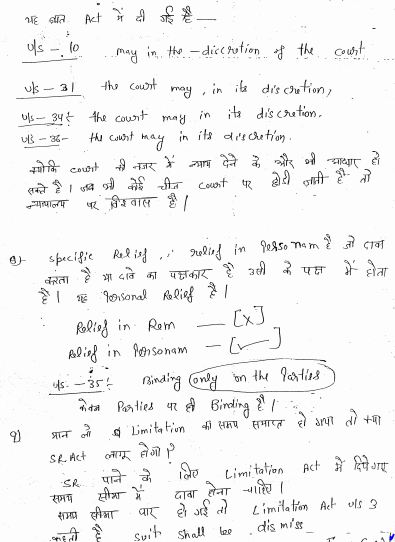 यह बात Act में दी गई है —
u/s - 10 may in the - discretion of the court
u/s - 31 the court may, in its discretion,
u/s - 34 : the court may in its discretion.
u/s - 36 - the court may in its discretion.
क्योंकि court की नजर में न्याय देने के और भी आधार हो
सकते है। जब भी कोई चीज court पर छोडी जाती है तो
न्यायालय पर विश्वास है।
specific Relief, relief in Personam है जो दावा
करता है या दावे का पक्षकार है उसी के पक्ष में होता
है। यह Personal Relief है।
Relief in Rem — [x]
Relief in Personam — [✓]
u/s - 35 : Binding only on the Parties
केवल Parties पर ही Binding है।
मान लो Limitation की समय समाप्त हो गया तो क्या
SR Act लागू होगा?
SR पाने के लिए Limitation Act में दिये गए
समय सीमा में दावा होना चाहिए।
समय सीमा पार हो गई तो Limitation Act u/s 3
कहती है suit shall be dismiss